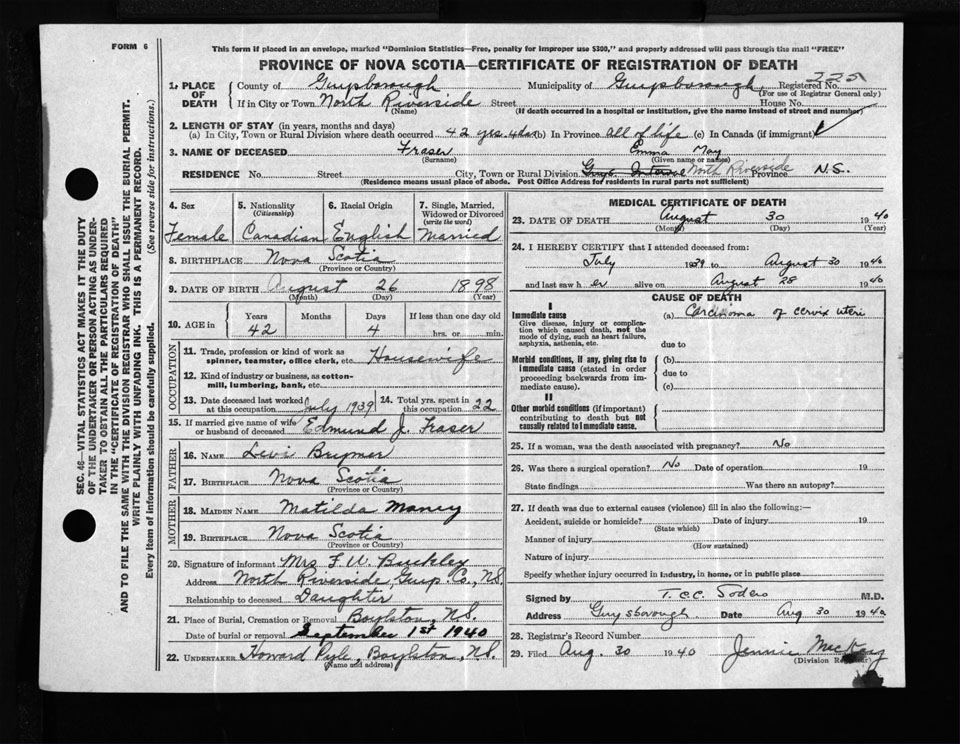 FORM 6
This form if placed in an envelope, marked "Dominion Statistics—Free, penalty for improper use $300," and properly addressed will pass through the mail "FREE"
PROVINCE OF NOVA SCOTIA—CERTIFICATE OF REGISTRATION OF DEATH
225
1. PLACE OF DEATH
County of Guysborough Municipality of Guysborough Registered No.
(For use of Registrar General only)
If in City or Town North Riverside Street House No.
(Name) (If death occurred in a hospital or institution, give the name instead of street and number)
2. LENGTH OF STAY (in years, months and days)
(a) In City, Town or Rural Division where death occurred 42 yrs. 4 das (b) In Province all of life (c) In Canada (if immigrant)
3. NAME OF DECEASED Fraser Emma May
(Surname) (Given name or names)
RESIDENCE No. Street City, Town or Rural Division Guys. North Riverside Province N.S.
(Residence means usual place of abode. Post Office Address for residents in rural parts not sufficient)
4. Sex Female
5. Nationality (Citizenship) Canadian
6. Racial Origin English
7. Single, Married, Widowed or Divorced (write the word) Married
8. BIRTHPLACE Nova Scotia
(Province or Country)
9. DATE OF BIRTH August 26 1898
(Month) (Day) (Year)
10. AGE in Years Months Days If less than one day old
42 4 hrs. or min.
OCCUPATION
11. Trade, profession or kind of work as spinner, teamster, office clerk, etc. Housewife
12. Kind of industry or business, as cotton-mill, lumbering, bank, etc.
13. Date deceased last worked at this occupation July 1939
14. Total yrs. spent in this occupation 22
15. If married give name of wife or husband of deceased Edmund J. Fraser
FATHER
16. NAME Levi Brymer
17. BIRTHPLACE Nova Scotia
(Province or Country)
MOTHER
18. MAIDEN NAME Matilda Maney
19. BIRTHPLACE Nova Scotia
(Province or Country)
20. Signature of informant Mrs F. W. Buckley
Address North Riverside, Guys. Co., N.S.
Relationship to deceased Daughter
21. Place of Burial, Cremation or Removal Boylston, N.S.
Date of burial or removal September 1st 1940
22. UNDERTAKER Howard Pyle, Boylston, N.S.
(Name and address)
MEDICAL CERTIFICATE OF DEATH
23. DATE OF DEATH August 30 1940
(Month) (Day) (Year)
24. I HEREBY CERTIFY that I attended deceased from:
July 1939 to August 30 1940
and last saw her alive on August 28 1940
CAUSE OF DEATH
I
Immediate cause
Give disease, injury or complication which caused death, not the mode of dying, such as heart failure, asphyxia, asthenia, etc.
(a) Carcinoma of cervix uteri
due to
Morbid conditions, if any, giving rise to immediate cause (stated in order proceeding backwards from immediate cause).
(b)
due to
(c)
II
Other morbid conditions (if important) contributing to death but not causally related to immediate cause.
25. If a woman, was the death associated with pregnancy? No
26. Was there a surgical operation? No Date of operation 19
State findings Was there an autopsy?
27. If death was due to external causes (violence) fill in also the following:—
Accident, suicide or homicide? Date of injury 19
(State which)
Manner of injury
(How sustained)
Nature of injury
Specify whether injury occurred in industry, in home, or in public place
Signed by T.C.C. Sodero M.D.
Address Guysborough Date Aug 30 1940
28. Registrar's Record Number
29. Filed Aug. 30 1940 Jennie MacKay
(Division Registrar)
SEC. 46—VITAL STATISTICS ACT MAKES IT THE DUTY
OF THE UNDERTAKER OR PERSON ACTING AS UNDER-
TAKER TO OBTAIN ALL THE PARTICULARS REQUIRED
IN THE "CERTIFICATE OF REGISTRATION OF DEATH"
AND TO FILE THE SAME WITH THE DIVISION REGISTRAR WHO SHALL ISSUE THE BURIAL PERMIT.
WRITE PLAINLY WITH UNFADING INK. THIS IS A PERMANENT RECORD.
Every item of information should be carefully supplied. (See reverse side for instructions.)